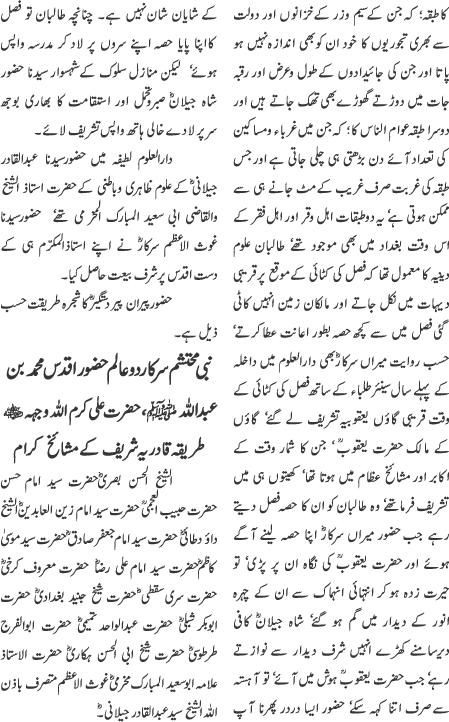 کا طبقہ؛ کہ جن کے سیم وزر کے خزانوں اور دولت
سے بھری تجوریوں کا خود ان کو بھی اندازہ نہیں ہو
پاتا اور جن کی جائیدادوں کے طول وعرض اور رقبہ
جات میں دوڑتے گھوڑے بھی تھک جاتے ہیں اور
دوسرا طبقہ عوام الناس کا؛ کہ جن میں غرباء ومساکین
کی تعداد آئے دن بڑھتی ہی چلی جاتی ہے اور جس
طبقہ کی غربت صرف غریب کے مٹ جانے ہی سے
ممکن ہوتی ہے‘ یہ دو طبقات اہل وقر اور اہل فقر کے
اس وقت بغداد میں بھی موجود تھے‘ طالبان علوم
دینیہ کا معمول تھا کہ فصل کی کٹائی کے موقع پر قریبی
دیہات میں نکل جاتے اور مالکان زمین انہیں کاٹی
گئی فصل میں سے کچھ حصہ بطور اعانت عطا کرتے‘
حسب روایت میراں سرکارؒ بھی دارالعلوم میں داخلہ
کے پہلے سال سینئر طلباء کے ساتھ فصل کی کٹائی کے
وقت قریبی گاؤں یعقوبیہ تشریف لے گئے‘ گاؤں
کے مالک حضرت یعقوبؒ‘ جن کا شمار وقت کے
اکابر اور مشائخ عظام میں ہوتا تھا‘ کھیتوں ہی میں
تشریف فرما تھے‘ وہ طالبان کو ان کا حصہ فصل دیتے
رہے جب حضور میراں سرکارؒ اپنا حصہ لینے آگے
ہوئے اور حضرت یعقوبؒ کی نگاہ ان پر پڑی‘ تو
حیرت زدہ ہو کر انتہائی انہماک سے ان کے چہرہ
انور کے دیدار میں گم ہو گئے‘ شاہ جیلانؒ کافی
دیر سامنے کھڑے انہیں شرف دیدار سے نوازتے
رہے‘ جب حضرت یعقوبؒ ہوش میں آئے‘ تو آہستہ
سے صرف اتنا کہہ سکے‘ حضور ایسا دردر پھرنا آپ
کے شایان شان نہیں ہے۔ چنانچہ طالبان تو فصل
کا اپنا پایا حصہ اپنے سروں پر لاد کر مدرسہ واپس
ہوئے‘ لیکن منازل سلوک کے شہسوار سیدنا حضور
شاہ جیلانؒ صبر وتحمل اور استقامت کا بھاری بوجھ
سر پر لادے خالی ہاتھ واپس تشریف لائے۔
دارالعلوم لطیفہ میں حضور سیدنا عبدالقادر
جیلانیؒ کے علوم ظاہری وباطنی کے حضرت استاذ الشیخ
والقاضی ابی سعید المبارک المخرمی تھے‘ حضور سیدنا
غوث الاعظم سرکارؒ نے اپنے استاذ المکرّم ہی کے
دست اقدس پر شرف بیعت حاصل کیا۔
حضور پیران پیر دستگیرؒ کا شجرہ طریقت حسب
ذیل ہے۔
نبی محتشم سرکار دو عالم حضور اقدس محمد بن
عبداللہ ﷺ، حضرت علی کرم اللہ وجہہ
طریقہ قادریہ شریف کے مشائخ کرام
الشیخ الحسن بصریؒ حضرت سید امام حسن
حضرت حبیب العجمیؒ حضرت سید امام زین العابدینؒ الشیخ
داؤد طائیؒ حضرت سید امام جعفر صادقؒ حضرت سید موسیٰ
کاظمؒ حضرت سید امام علی رضاؒ حضرت معروف کرخیؒ
حضرت سری سقطیؒ حضرت شیخ جنید بغدادیؒ حضرت
ابوبکر شبلیؒ حضرت عبدالواحد تمیمیؒ حضرت ابوالفرح
طرطوسیؒ حضرت شیخ ابی الحسن ہکاریؒ حضرت الاستاذ
علامہ ابوسعید المبارک مخرمیؒ غوث الاعظم متصرف باذن
اللہ الشیخ سید عبدالقادر جیلانیؒ۔